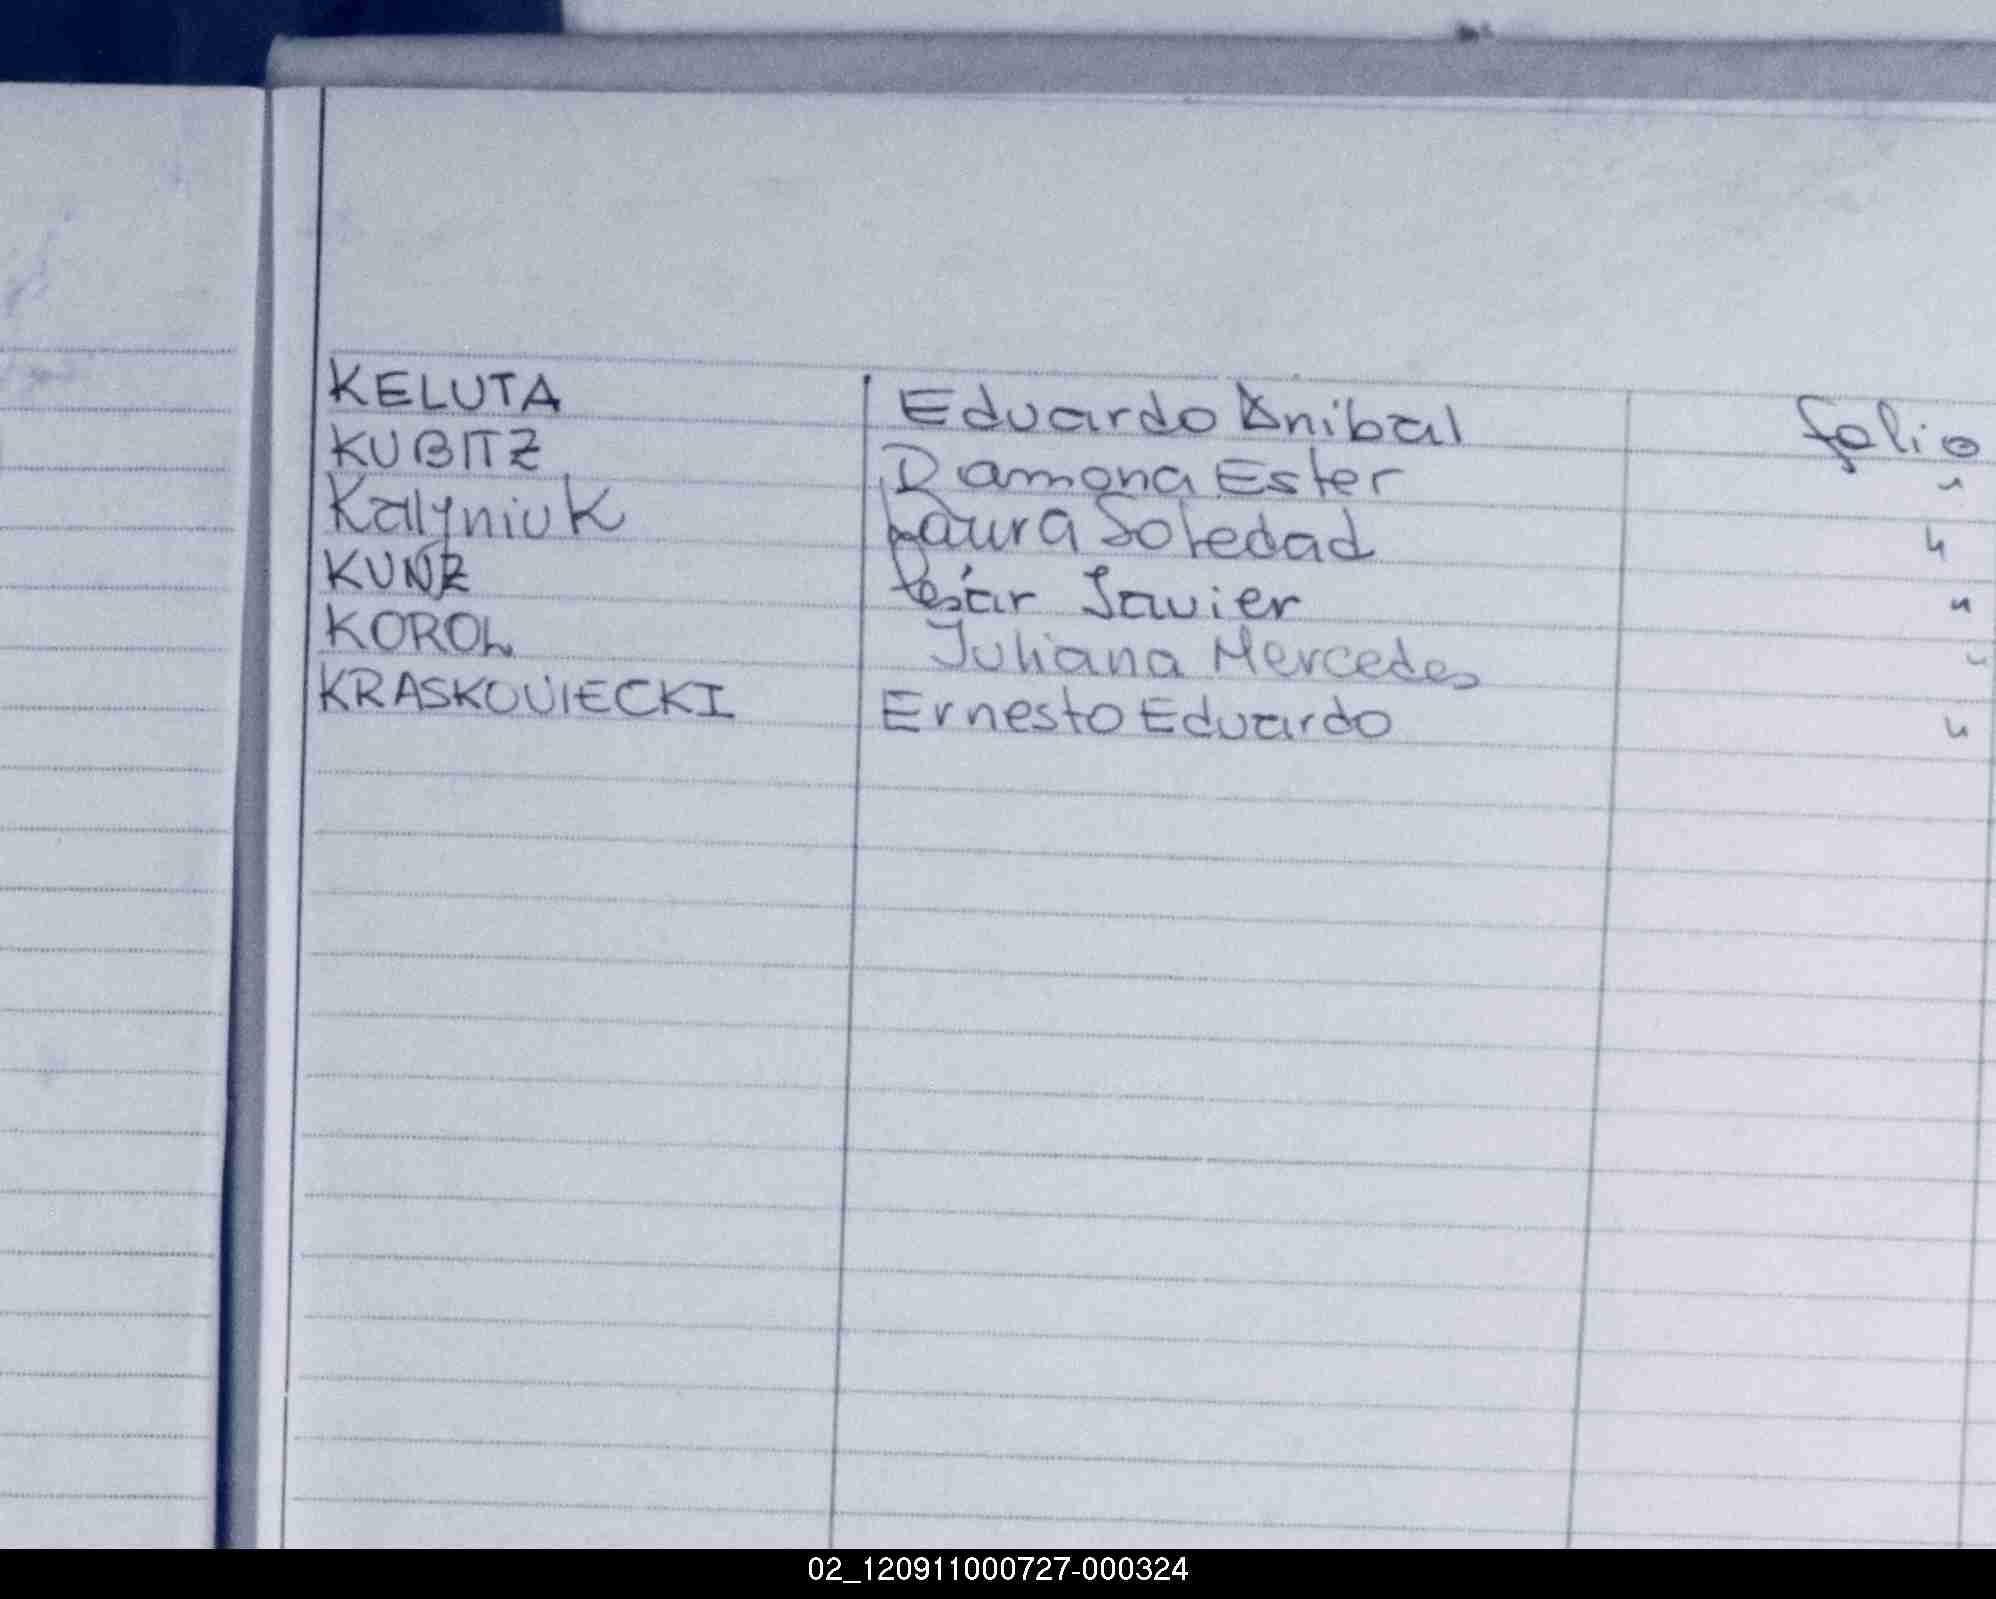 KELUTA Eduardo Anibal folio
KUBITZ Ramona Ester "
Kalyniuk Laura Soledad "
KUNZ César Javier "
KOROL Juliana Mercedes "
KRASKOVIECKI Ernesto Eduardo "
02_120911000727-000324